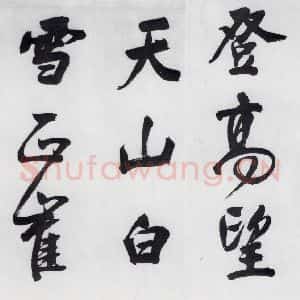 登高望
天山白
雪正崔
Shufawang.CN